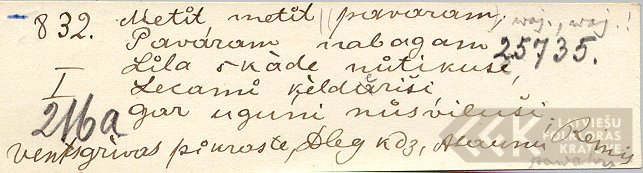 832. Metit metit pavaram,
Pavaram nabagam 25735.
I Lila skāde nutikusē,
Lecami ķeldēriši,
216a gar uguni nusviluši,
Ventsgrivas pikroste, Aleg kdz,
LATVIEŠU FOLKLORAS KRĀTUVE